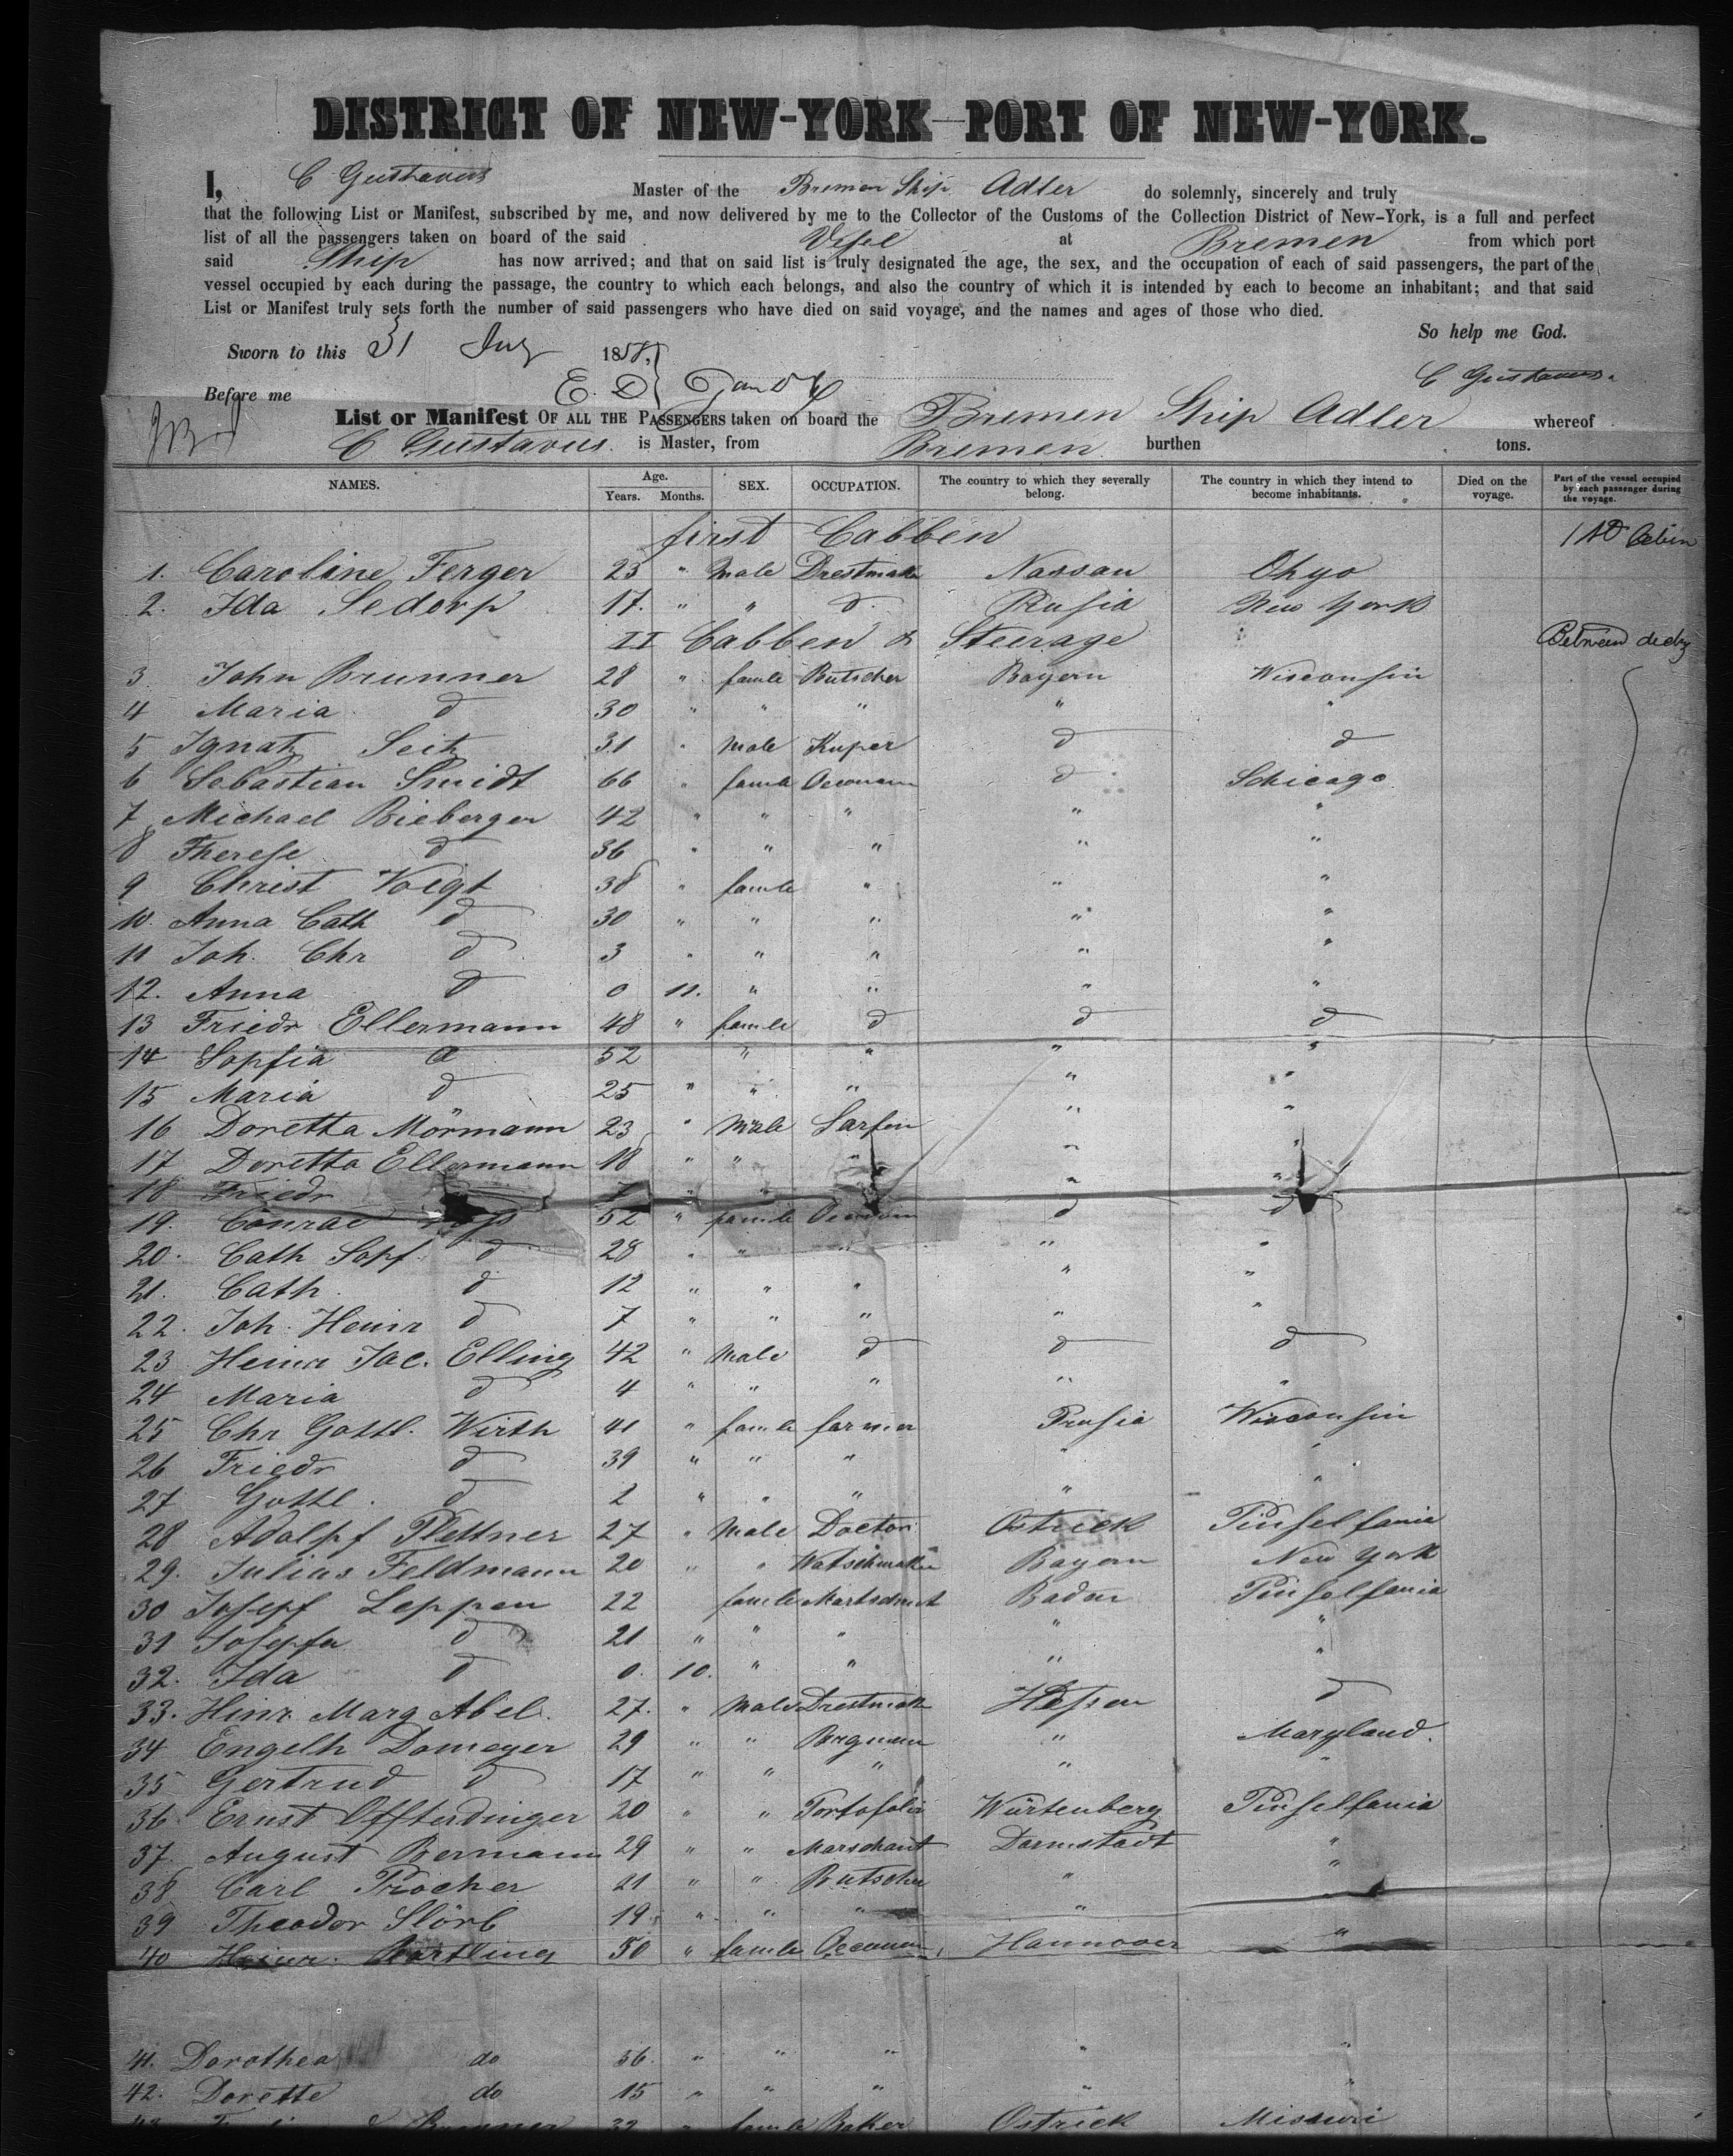 DISTRICT OF NEW-YORK—PORT OF NEW-YORK.
I, C Gustavus Master of the Bremen Ship Adler do solemnly, sincerely and truly
that the following List or Manifest, subscribed by me, and now delivered by me to the Collector of the Customs of the Collection District of New-York, is a full and perfect
list of all the passengers taken on board of the said Vesel at Bremen from which port
said Ship has now arrived; and that on said list is truly designated the age, the sex, and the occupation of each of said passengers, the part of the
vessel occupied by each during the passage, the country to which each belongs, and also the country of which it is intended by each to become an inhabitant; and that said
List or Manifest truly sets forth the number of said passengers who have died on said voyage, and the names and ages of those who died.
So help me God.
Sworn to this 31 1858.
Before me E. D C Gustavus.
List or Manifest OF ALL THE PASSENGERS taken on board the Bremen Ship Adler whereof
C Gustavus. is Master, from Bremen burthen tons.
NAMES. Age. Years. Months. SEX. OCCUPATION. The country to which they severally belong. The country in which they intend to become inhabitants. Died on the voyage. Part of the vessel occupied by each passenger during the voyage.
first Cabben
1. Caroline Ferger 23 " Male Drestmaker Nassau Ohyo
2. Ida Sedorp 17. " " d. Prusia New York
II Cabben & Steerage
3 John Brunner 28 " famle Butscher Bayern Wisconsin
4 Maria d 30 " " " " "
5 Ignatz Seitz 31 " Male Kuper d d
6 Sebastian Smidt 66 " famle Oeconom d Schicago
7 Michael Bieberger 42 " " " " "
8 Therese d 36 " " " " "
9 Christ Voigt 38 " famle " " "
10. Anna Cath d 30 " " " " "
11 Joh. Chr d 3 " " " " "
12. Anna d 0 11. " " " "
13 Friedr Ellermann 48 " famle d d d
14 Sopfia d 52 " " " "
15 Maria d 25 " " " " "
16 Doretta Mörmann 23 " Male Sarfen " "
17 Doretta Ellermann 18 " " " " "
18 Friedr 7 " " " "
19. Conrad 52 " famle Oeconom d d
20. Cath Sopf d 28 " " " " "
21. Cath. d 12 " " " " "
22. Joh. Heinr d 7 " " " " "
23 Heinr Jac. Elling 42 " Male d d d
24 Maria d 4 " " " " "
25 Chr Gottl. Wirth 41 " famle farmer Prusia Wisconsin
26 Friedr d 39 " " " " "
27 Gottl. d 2 " " " " "
28 Adolpf Plettner 27 " Male Doctor Ostrick Pinselfania
29. Julius Feldmann 20 " " Watschmaker Bayern New York
30 Josepf Leppen 22 famle Baden Pinselfania
31 Josepfa d 21 " " " " "
32. Ida d 0. 10. " " " "
33. Hinr. Marg Abel. 27. " Male Drestmak Hessen d
34 Engelh Domeyer 29 " " Bergman " Maryland.
35 Gertrud d 17 " " " " "
36. Ernst Offterdinger 20 " " Würtenberg Pinselfania
37. August Bermann 29 " " Marschant Darmstadt "
38 Carl Procher 21 " " Butscher " "
39 Theodor Slörb 19 " " " "
40 Heinr. Bartling 50 " famle Oeconom Hannover "
41. Dorothea do 36. " " " " "
42. Dorette do 15 " " " " "
32 " famle Baker Ostrick Missuri